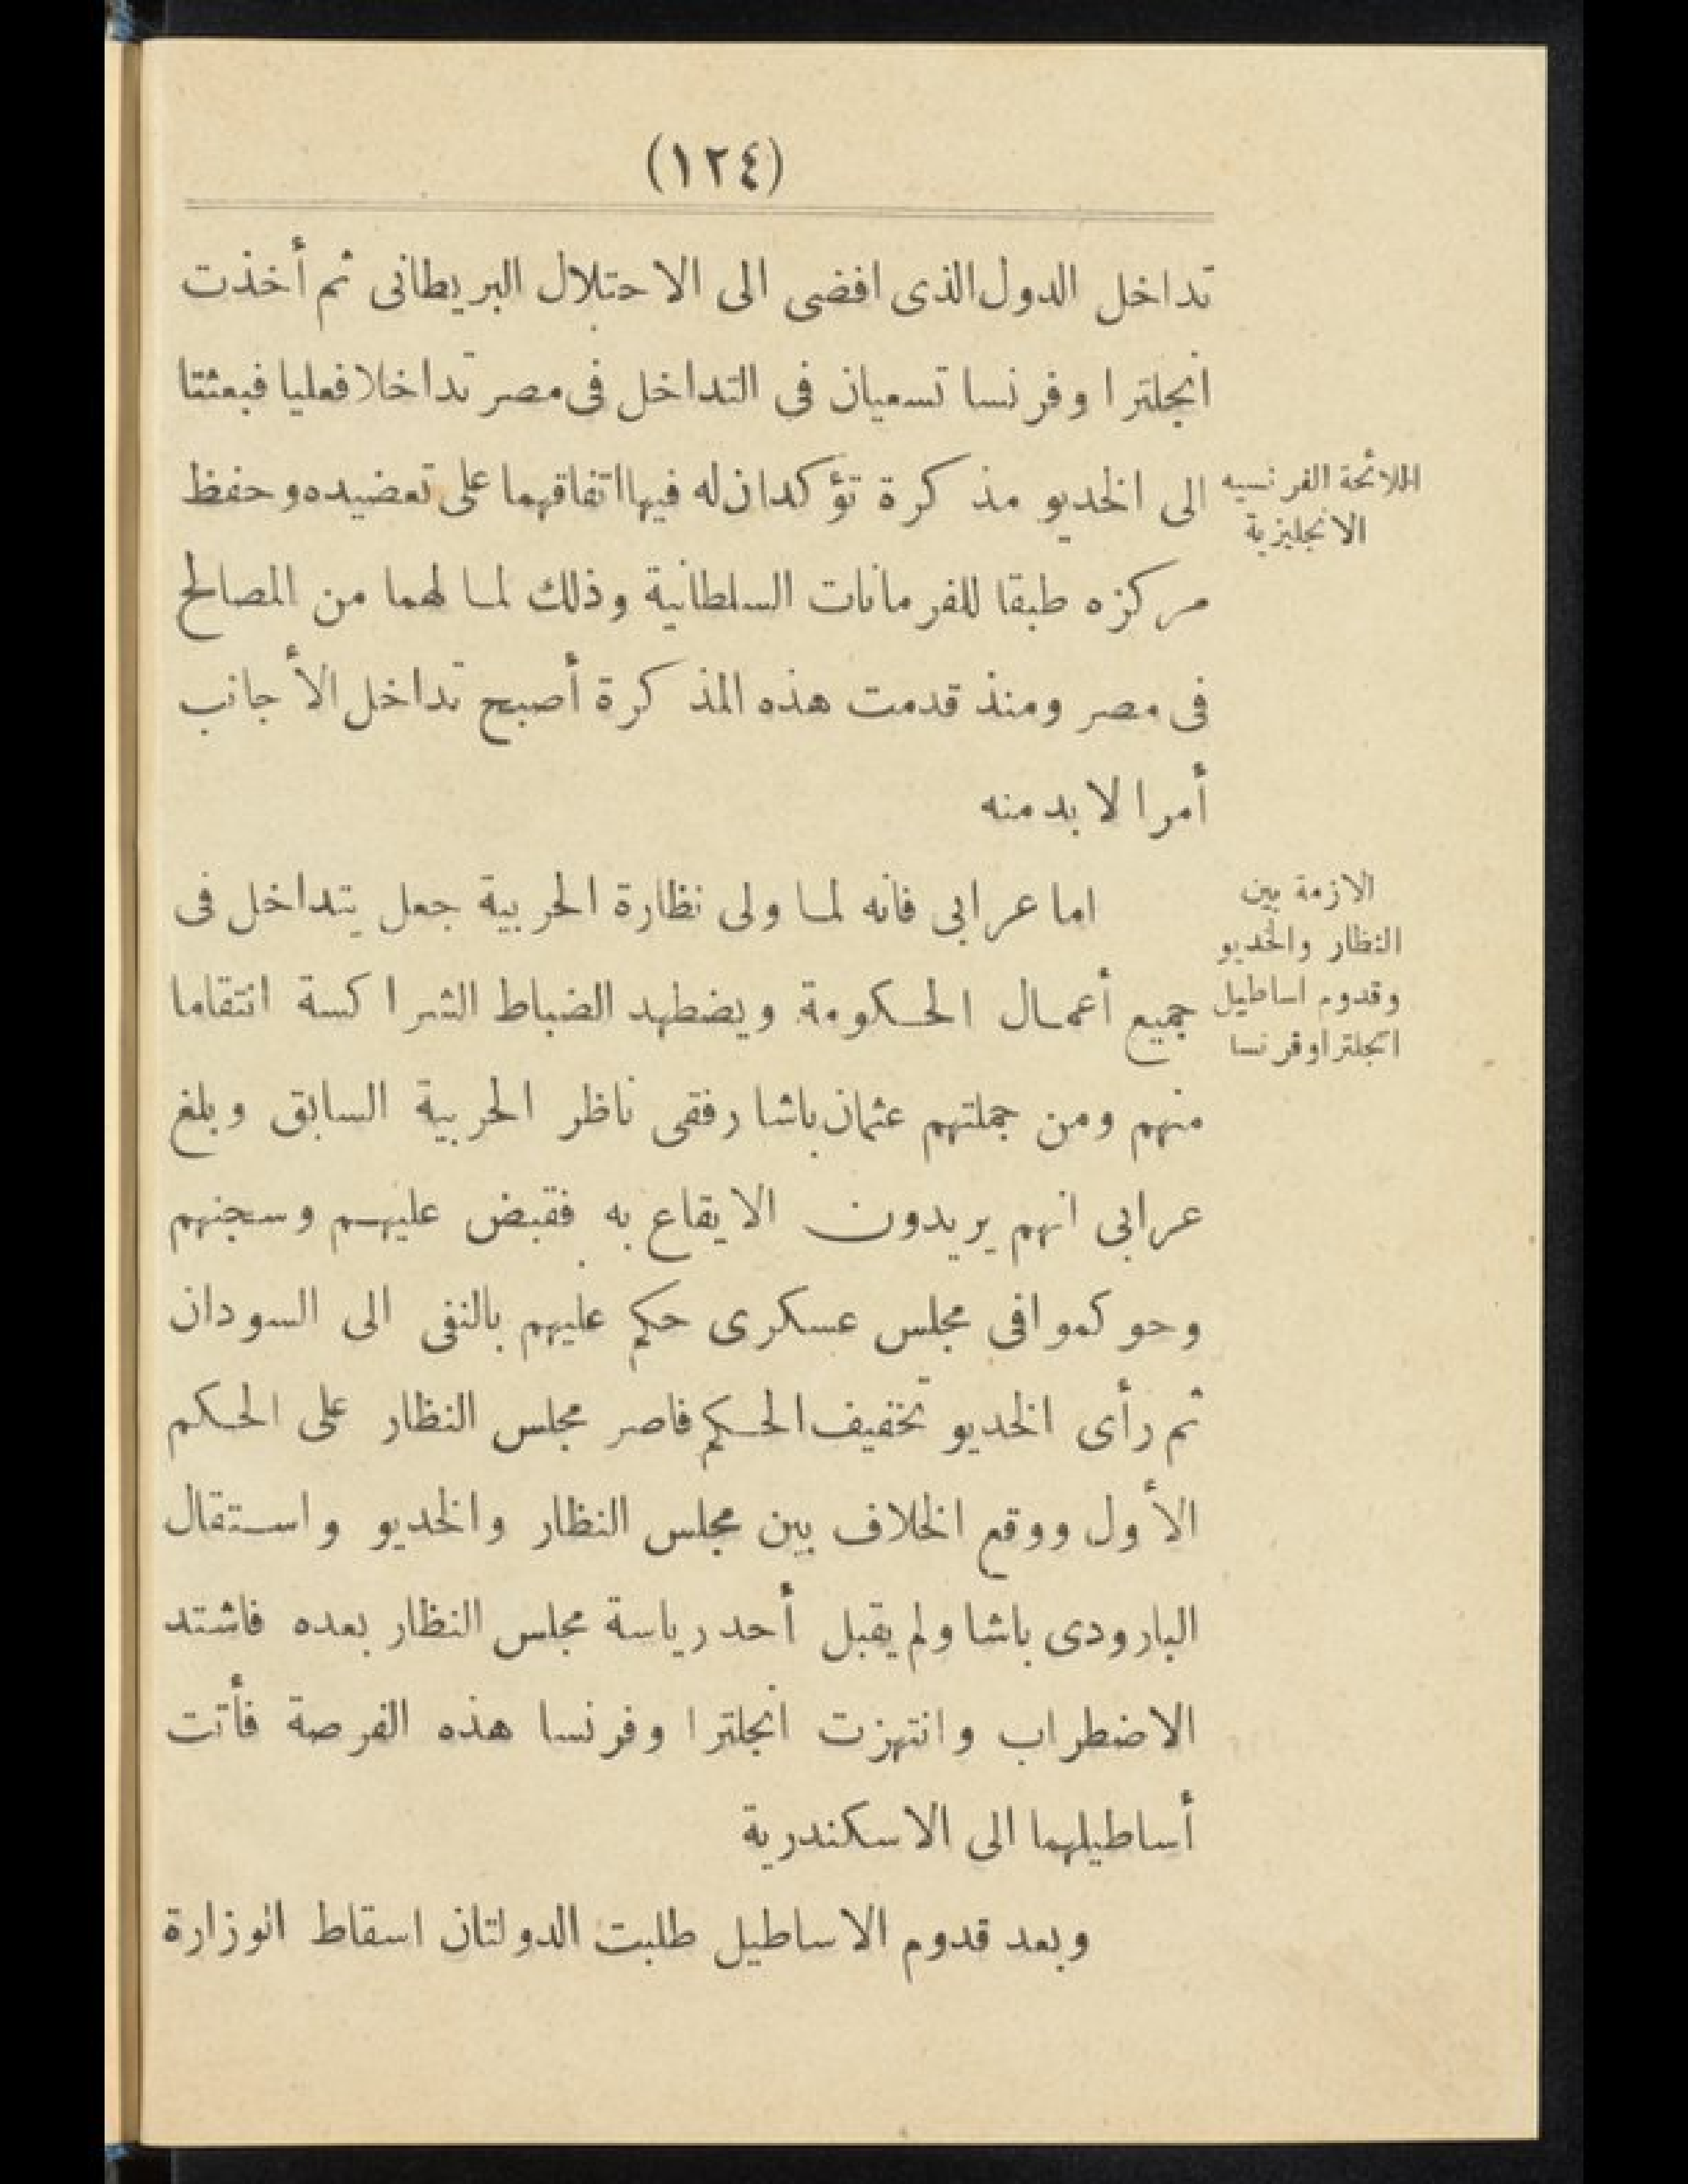 (١٢٤)
تداخل الدول الذى افضى الى الاحتلال البريطانى ثم أخذت
انجلترا وفرنسا تسعيان فى التداخل فى مصر تداخلا فعليا فبعثتا
اللائحة الفرنسيه
الانجليزية
الى الخديو مذكرة تؤكدان له فيها اتفاقهما على تعضيده وحفظ
مركزه طبقا للفرمانات السلطانية وذلك لما لهما من المصالح
فى مصر ومنذ قدمت هذه المذكرة أصبح تداخل الأجانب
أمرا لا بد منه
الازمة بين
النظار والخديو
وقدوم اساطيل
انجلترا وفرنسا
اما عرابى فانه لما ولى نظارة الحربية جعل يتداخل فى
جميع أعمال الحكومة ويضطهد الضباط الشراكسة انتقاما
منهم ومن جملتهم عثمان باشا رفقى ناظر الحربية السابق وبلغ
عرابى انهم يريدون الايقاع به فقبض عليهم وسجنهم
وحوكموا فى مجلس عسكرى حكم عليهم بالنفى الى السودان
ثم رأى الخديو تخفيف الحكم فاصر مجلس النظار على الحكم
الأول ووقع الخلاف بين مجلس النظار والخديو واستقال
البارودى باشا ولم يقبل أحد رياسة مجلس النظار بعده فاشتد
الاضطراب وانتهزت انجلترا وفرنسا هذه الفرصة فأتت
أساطيلهما الى الاسكندرية
وبعد قدوم الاساطيل طلبت الدولتان اسقاط الوزارة